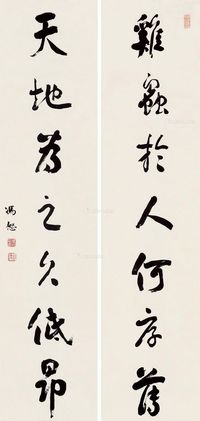 雞蟲於人何厚薄
天地為之久低昂
馮恕